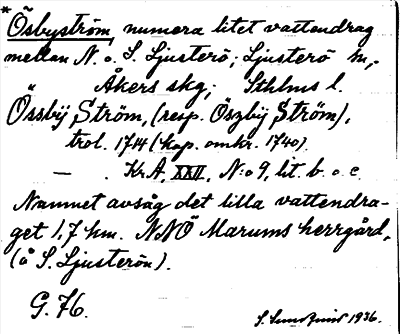 * Ösbyström, numera litet vattendrag
mellan N. o. S. Ljusterö; Ljusterö sn,
Åkers skg; Sthlms l.
Össbÿ Ström, (resp. Öszbÿ Ström),
trol. 1714 (kop. omkr. 1740).
— . Kr.A, XXII, N:o 9, lit. b. o. c.
Namnet avsåg det lilla vattendra-
get 1,7 km. NNÖ Marums herrgård,
(å S. Ljusterön).
G. 76.
S. 1936.